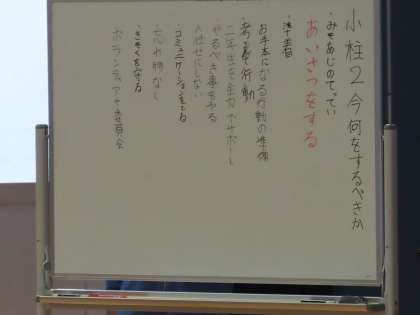 小柱2 今何をするべきか
・みそあじのてってい
あいさつをする
・清書
お手本になる行動の準備
・考えて行動
二年生を全力でサポート
・やるべき事をやる
人任せにしない
・コミュニケーションをとる
・忘れ物なし
・きそくを守る
ボランティアや委員会